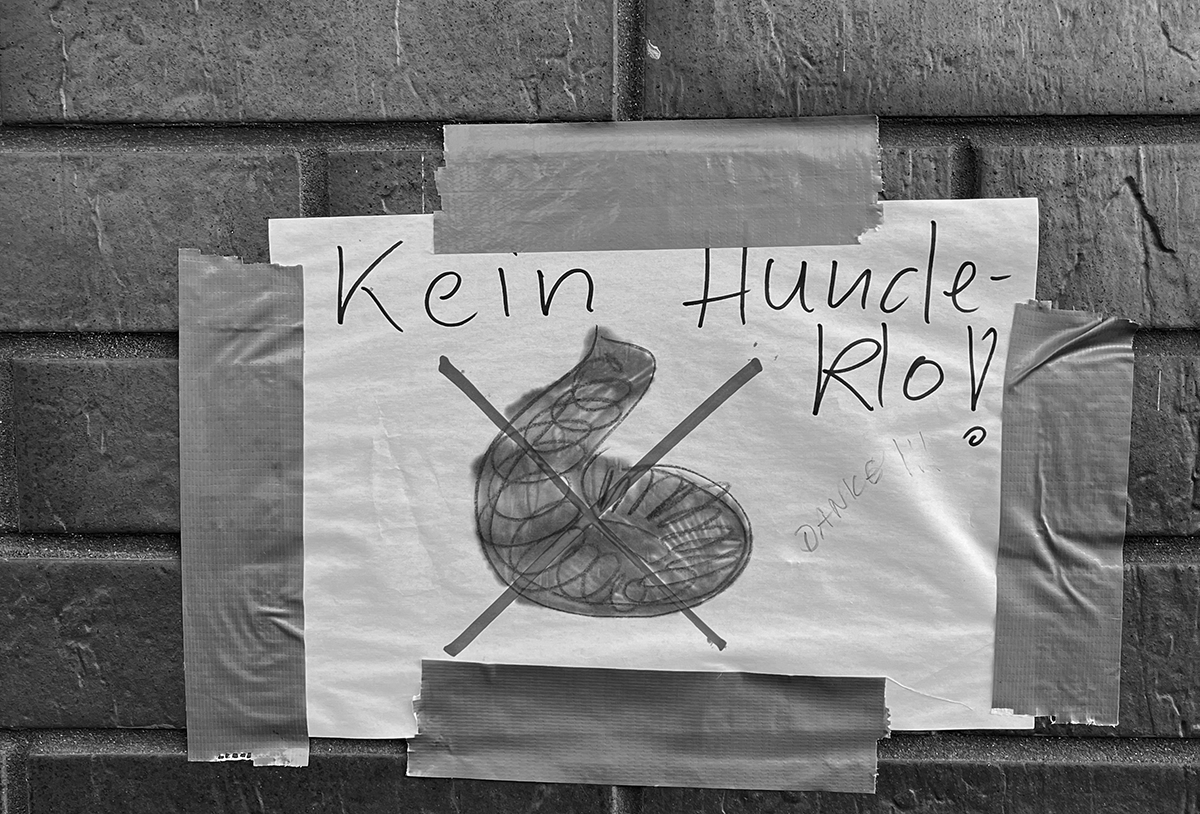 Kein Hunde-
Klo!
DANKE!!!